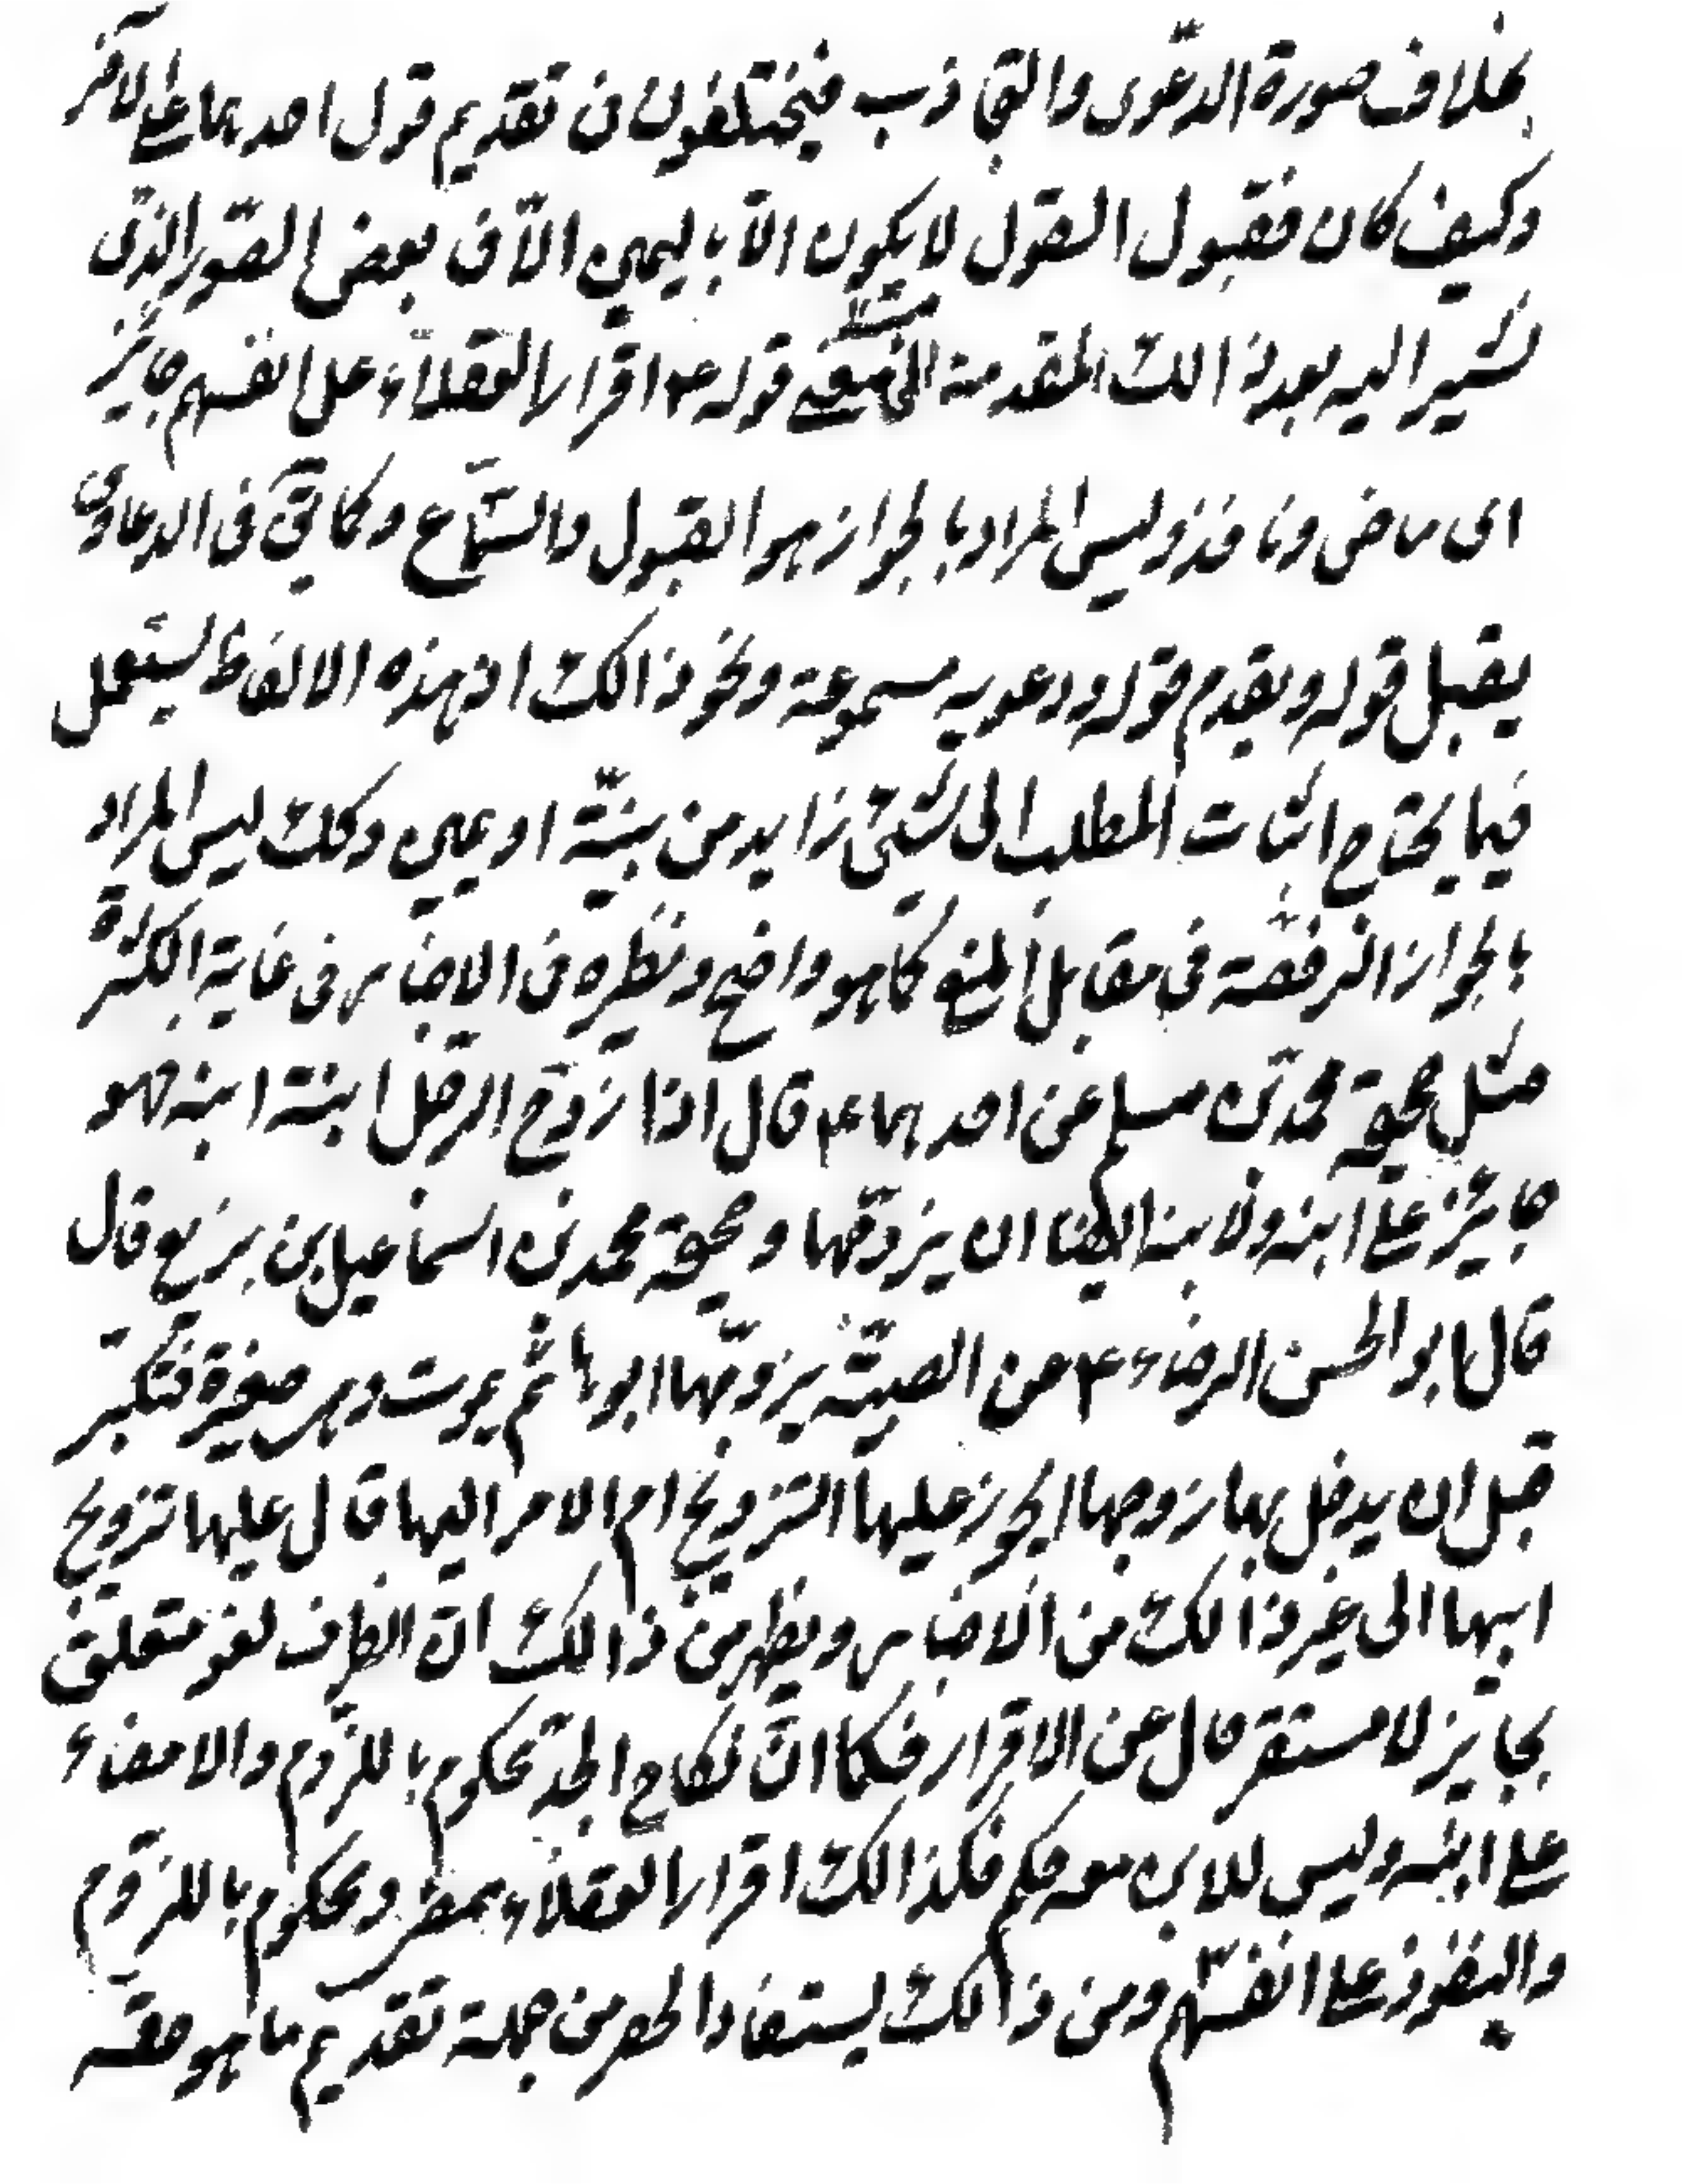 بخلاف صورة الدعوى والتجاذب فيختلفون فى تقديم قول احدهما على الاخر
وكيف كان فقبول القول لا يكون الّا باليمين الّا فى بعض الصّور الذى
نشير اليه بعد ذالك المقدمة قوله ع اقرار العقلاء على انفسهم جايز
اى ماض ونافذ وليس المراد بالجواز هو القبول والسّماع وكما فى الدعاوى
يقبل قوله ويقدم قوله ودعويه مسموعة ونحو ذالك اذ هذه الالفاظ يستعمل
فيما يحتاج اثبات المطلب الى شئ زايد من بيّنة او يمين وكك ليس المراد
بالجواز الرخصة فى مقابل المنع كما هو واضح ونظيره فى الاخبار فى غاية الكثرة
مثل صحيحة محمد بن مسلم عن احدهما ع قال اذا زوّج الرجل ابنة ابنه فهو
جائز على ابنه ولابنه ايضا ان يزوّجها وصحيحة محمد بن اسماعيل بن بزيع قال
قال ابو الحسن الرضاء ع عن الصبيّة يزوّجها ابوها ثم يموت وهى صغيرة فتكبر
قبل ان يدخل بها زوجها ايجوز عليها التزويج ام الامر اليها قال عليها تزويج
ابيها الى غير ذالك من الاخبار ويظهر من ذالك انّ الظرف لغو متعلق
بجايز لا مستقر حال عن الاقرار فكما انّ نكاح الجدّ محكوم باللزوم والامضاء
على ابنه وليس للابن معه حكم فكذالك اقرار العقلاء ممضى ومحكوم باللزوم
والنفوذ على انفسهم ومن ذالك يستفاد الحصر من جملة تقديم ما هو حقه